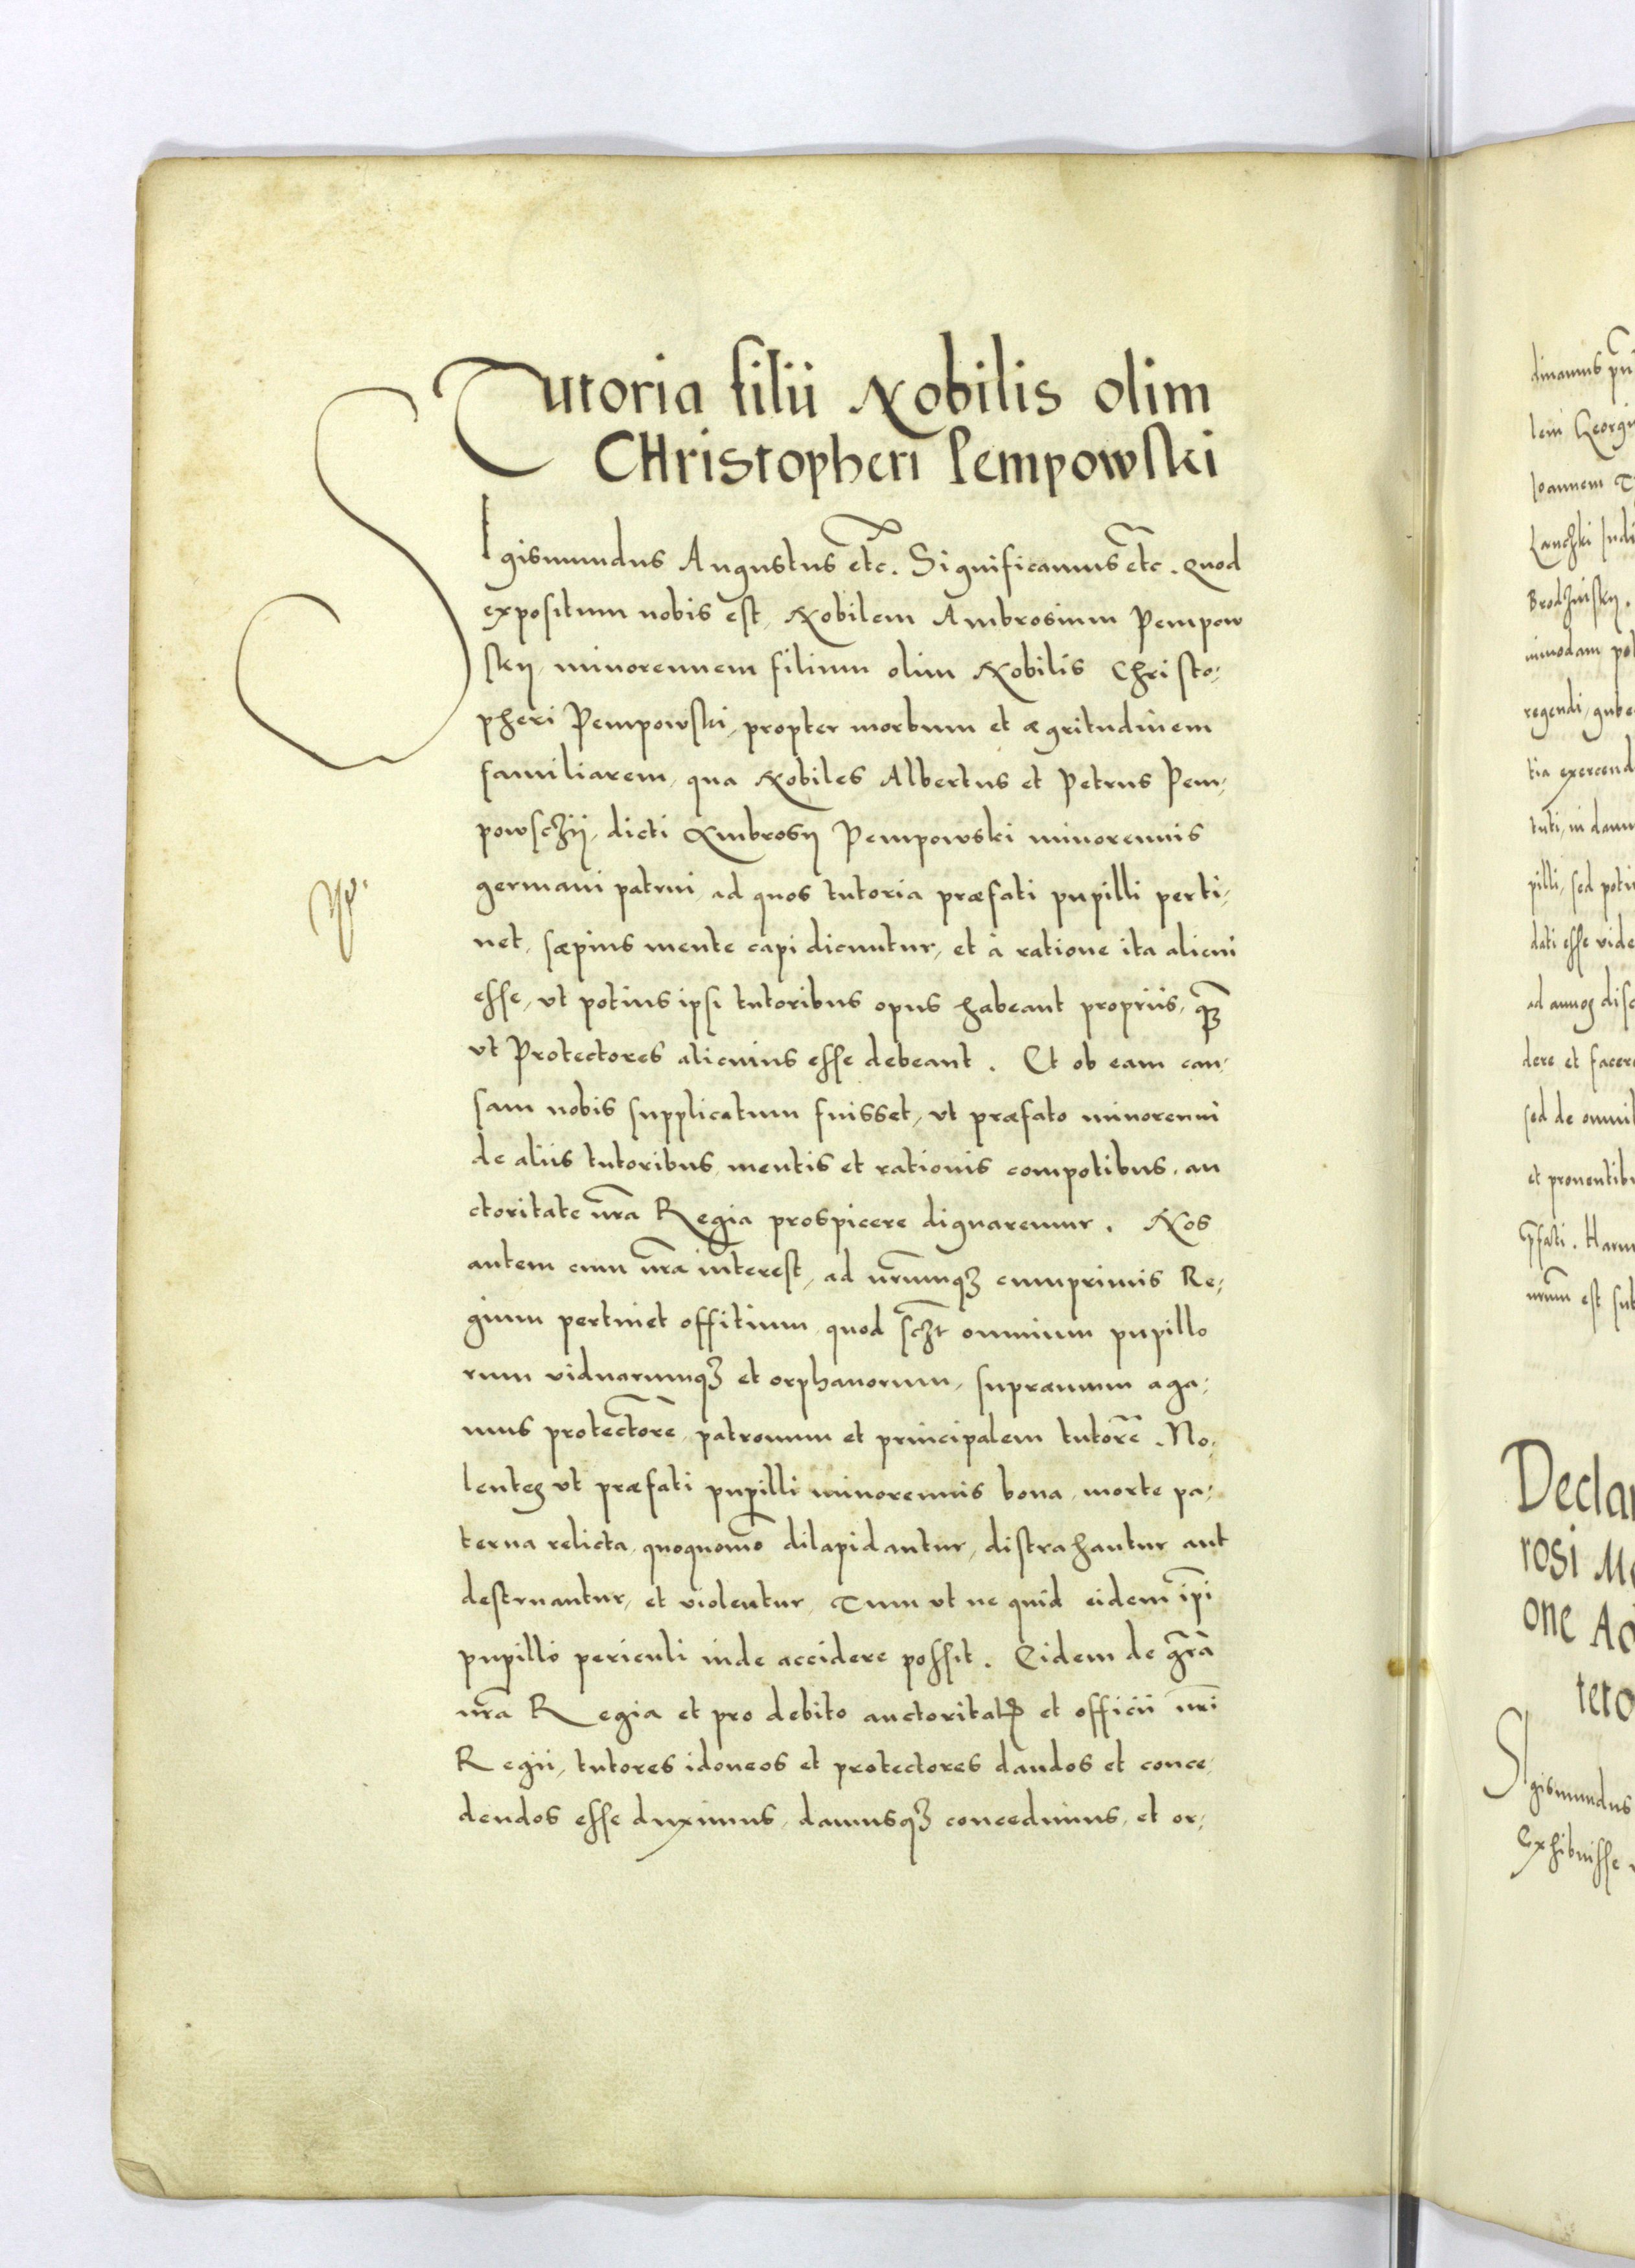 Tutoria filii Nobilis olim
CHristopheri Pempowski
Sigismundus Augustus etc. Significamus etc. quod
expositum nobis est, Nobilem Ambrosium Pempow
skij, minorennem filium olim Nobilis Christo,
pheri Pempowski, propter morbum et ægritudinem
familiarem, qua Nobiles Albertus et Petrus Pem,
powsczii, dicti Ambrosij Pempowski minorennis
germani patrui, ad quos tutoria præfati pupilli perti,
net, sæpius mente capi dicuntur, et à ratione ita alieni
esse, vt potius ipsi tutoribus opus habeant propriis, qȝ
vt Protectores alicuius esse debeant. Et ob eam cau,
sam nobis supplicatum fuisset, vt præfato minorenni
de aliis tutoribus, mentis et rationis compotibus, au
ctoritate nr̃a Regia prospicere dignaremur. Nos
autem cum nr̃a interest, ad nr̃umqȝ cumprimis Re,
gium pertinet offitium, quod sczt omnium pupillo
rum viduarumqȝ et orphanorum, supræmum aga,
mus protectorẽ, patronum et principalem tutorẽ. No,
lentes vt præfati pupilli minorennis bona, morte pa,
terna relicta, quoquomõ dilapidantur, distrahantur aut
destruantur, et violentur, Tum vt ne quid eidem ip̃i
pupillo periculi inde accidere possit. Eidem de gr̃a
nr̃a Regia et pro debito auctoritatꝭ et officii nr̃i
Regii, tutores idoneos et protectores dandos et conce,
dendos esse duximus, damusqȝ concedimus, et or,
lem Georgiu
Ioannem T
regendi, gube
tia exercend
pilli, sed poti
dati esse vide
dere et facere
sed de omnib
et prouentibu
nr̃um est sub
Declar
rosi M
one A
teto
Sigismundus
Exhibuisse